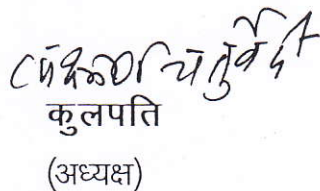 चतुर्वेदी
कुलपति
(अध्यक्ष)